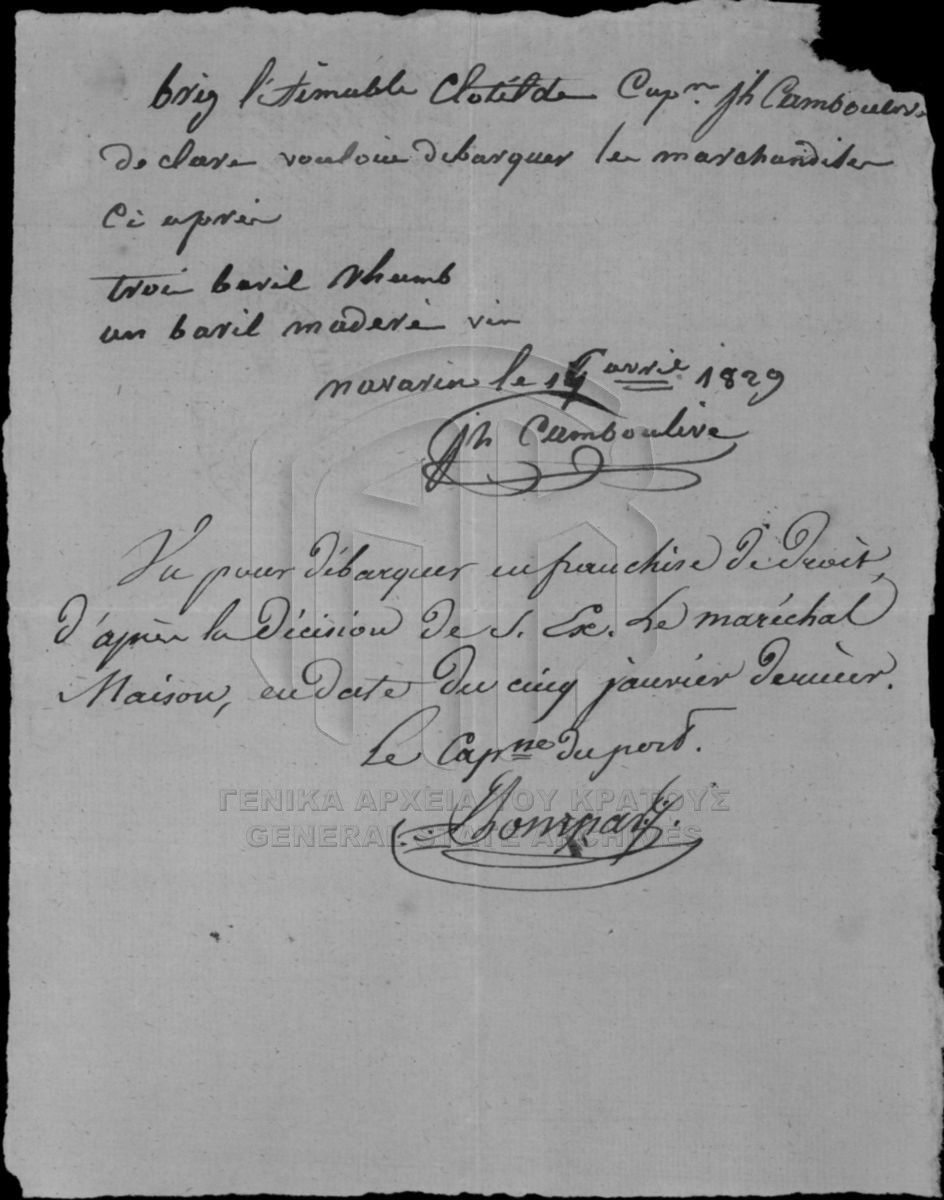 brig l'Aimable Clotilde Capn. jh Camboulive
declare vouloir debarquer les marchandises
Ci après
trois baril Rhumb
un baril maderé vin
navarin le avril 1829
jh Camboulive
Vu pour débarquer en franchise de droit,
d'après la décision de S. Ex. Le maréchal
Maison, en date du cinq janvier dernier.
Le Capne du port.
ΓΕΝΙΚΑ ΑΡΧΕΙΑ ΤΟΥ ΚΡΑΤΟΥΣ
GENERAL STATE ARCHIVES